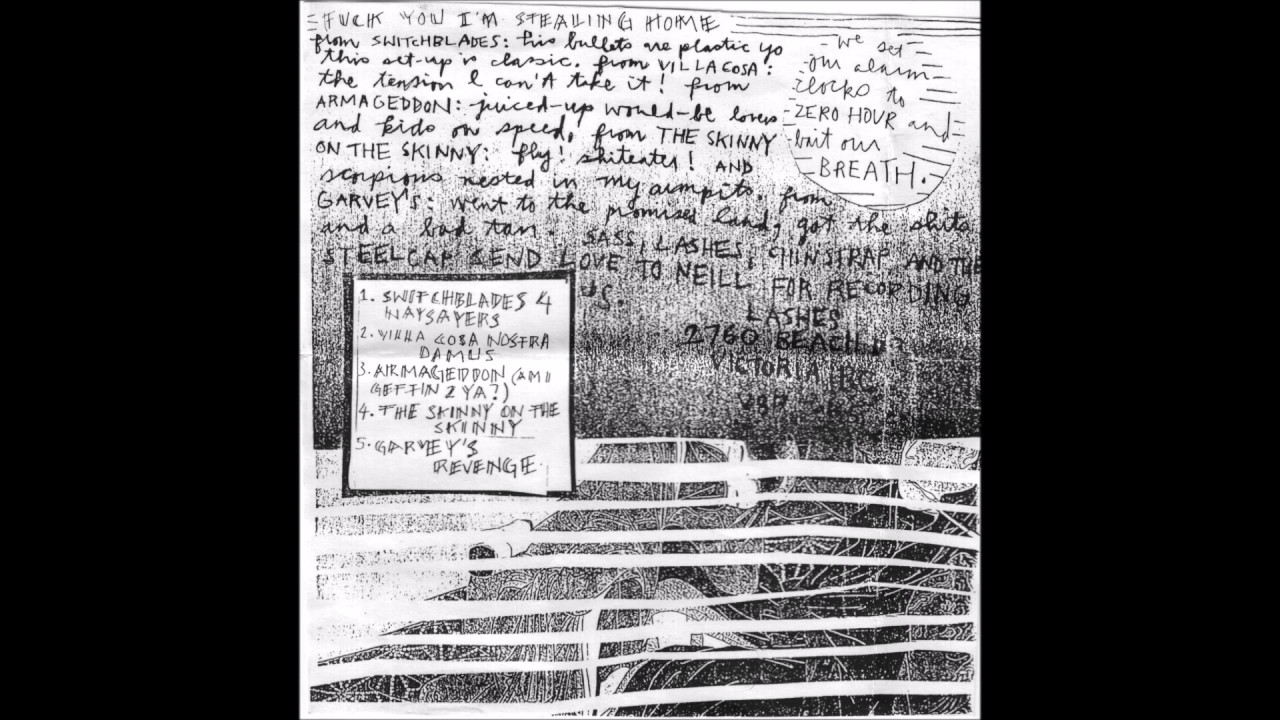 FUCK YOU I'M STEALING HOME
from SWITCHBLADES: his bullets are plastic yo
this set-up is classic. from VILLA COSA:
the tension I can't take it! from
ARMAGEDDON: juiced-up would-be lovers
and kids on speed, from THE SKINNY
ON THE SKINNY: fly! shiteater! AND
scorpions nested in my armpits. from
GARVEY'S: went to the promised land, got the shits
and a bad tan.
SASS, LASHES, CHINSTRAP, AND THE
STEELCAP SEND LOVE TO NEILL FOR RECORDING
US.
LASHES
2760 BEACH
VICTORIA BC
we set
our alarm
clocks to
ZERO HOUR and
bait our
BREATH.
1. SWITCHBLADES 4
NAYSAYERS
2. VILLA COSA NOSTRA
DAMUS
3. ARMAGEDDON (AM I
GETTIN 2 YA?)
4. THE SKINNY ON THE
SKINNY
5. GARVEY'S
REVENGE